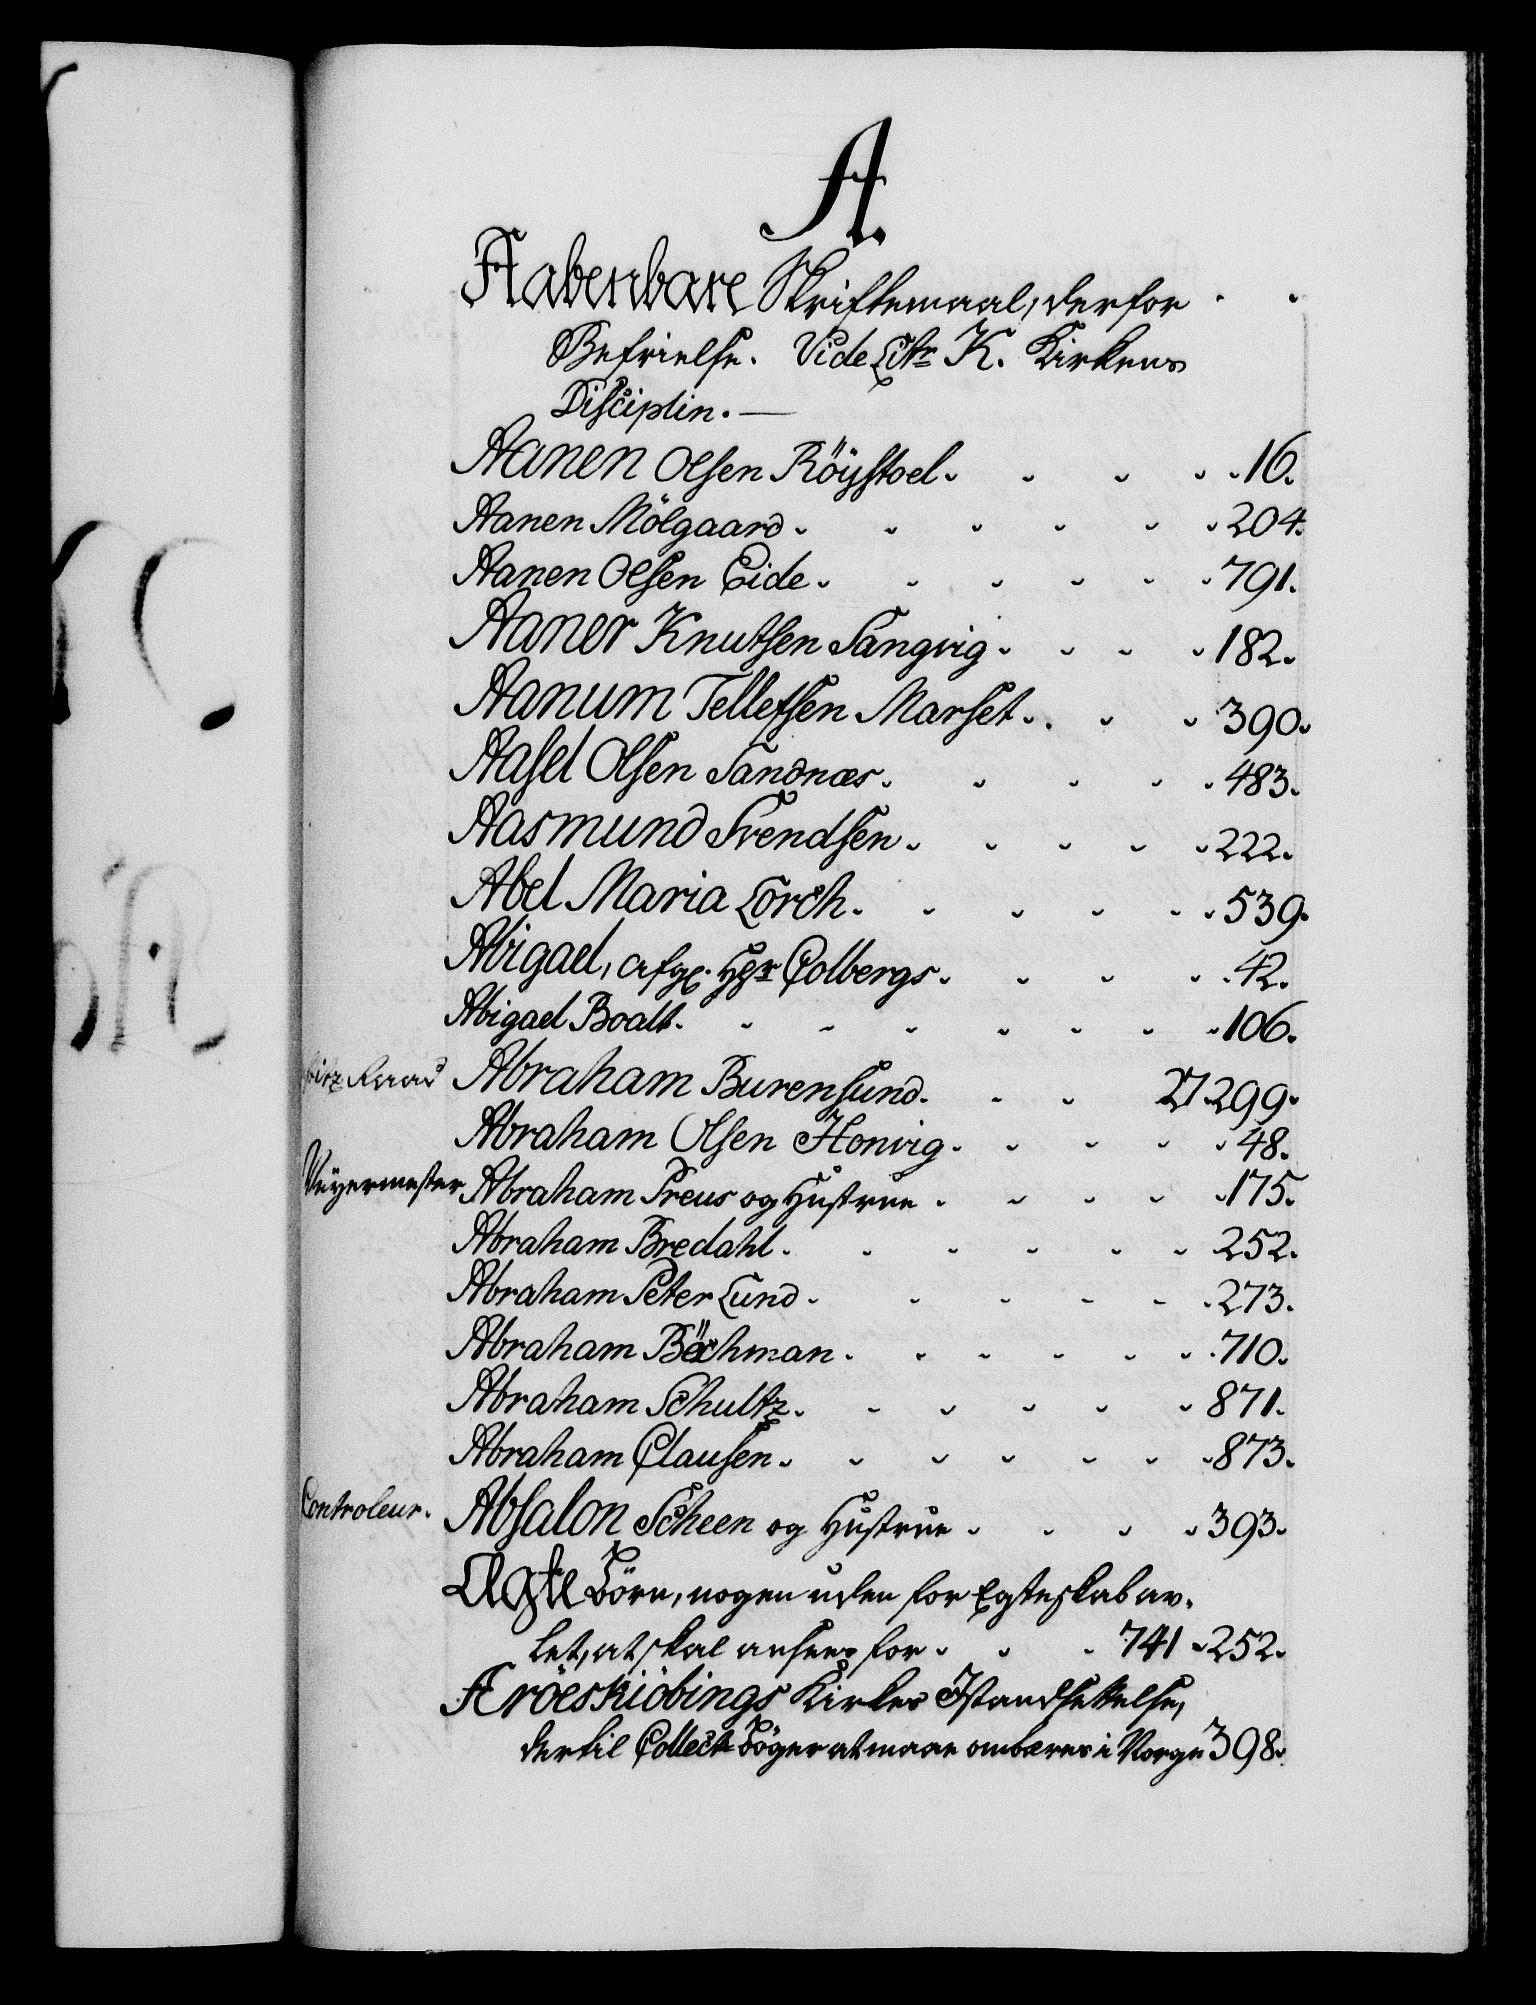 A.
Aabenbare Skriftemaal, derfor
Befrielse. Vide Litr K. Kirkens
Disciplin. —
Aanen Olsen Röystoel. 16.
Aanen Mölgaard. 204.
Aanen Olsen Eide. 791.
Aaner Knutsen Sangvig. 182.
Aanum Tellefsen Marset. 390.
Aasel Olsen Sandnæs. 483.
Aasmund Svendsen. 222.
Abel Maria Lorch. 539.
Abigael, afg. Hr Colbergs. 42.
Abigael Boalt. 106.
Raad Abraham Burensund. 27. 299.
Abraham Olsen Honvig. 48.
Veyermester Abraham Preus og Hustrue. 175.
Abraham Bredahl. 252.
Abraham Peter Lund. 273.
Abraham Böchman. 710.
Abraham Schultz. 871.
Abraham Clausen. 873.
Controleur. Absalon Scheen og Hustrue. 393.
Ægte Börn, nogen uden for Egteskab av-
let, at skal ansees for. 741. 252.
Æröeskiöbings Kirkes Istandsettelse,
dertil Collect Böger at maae ombæres i Norge 398.